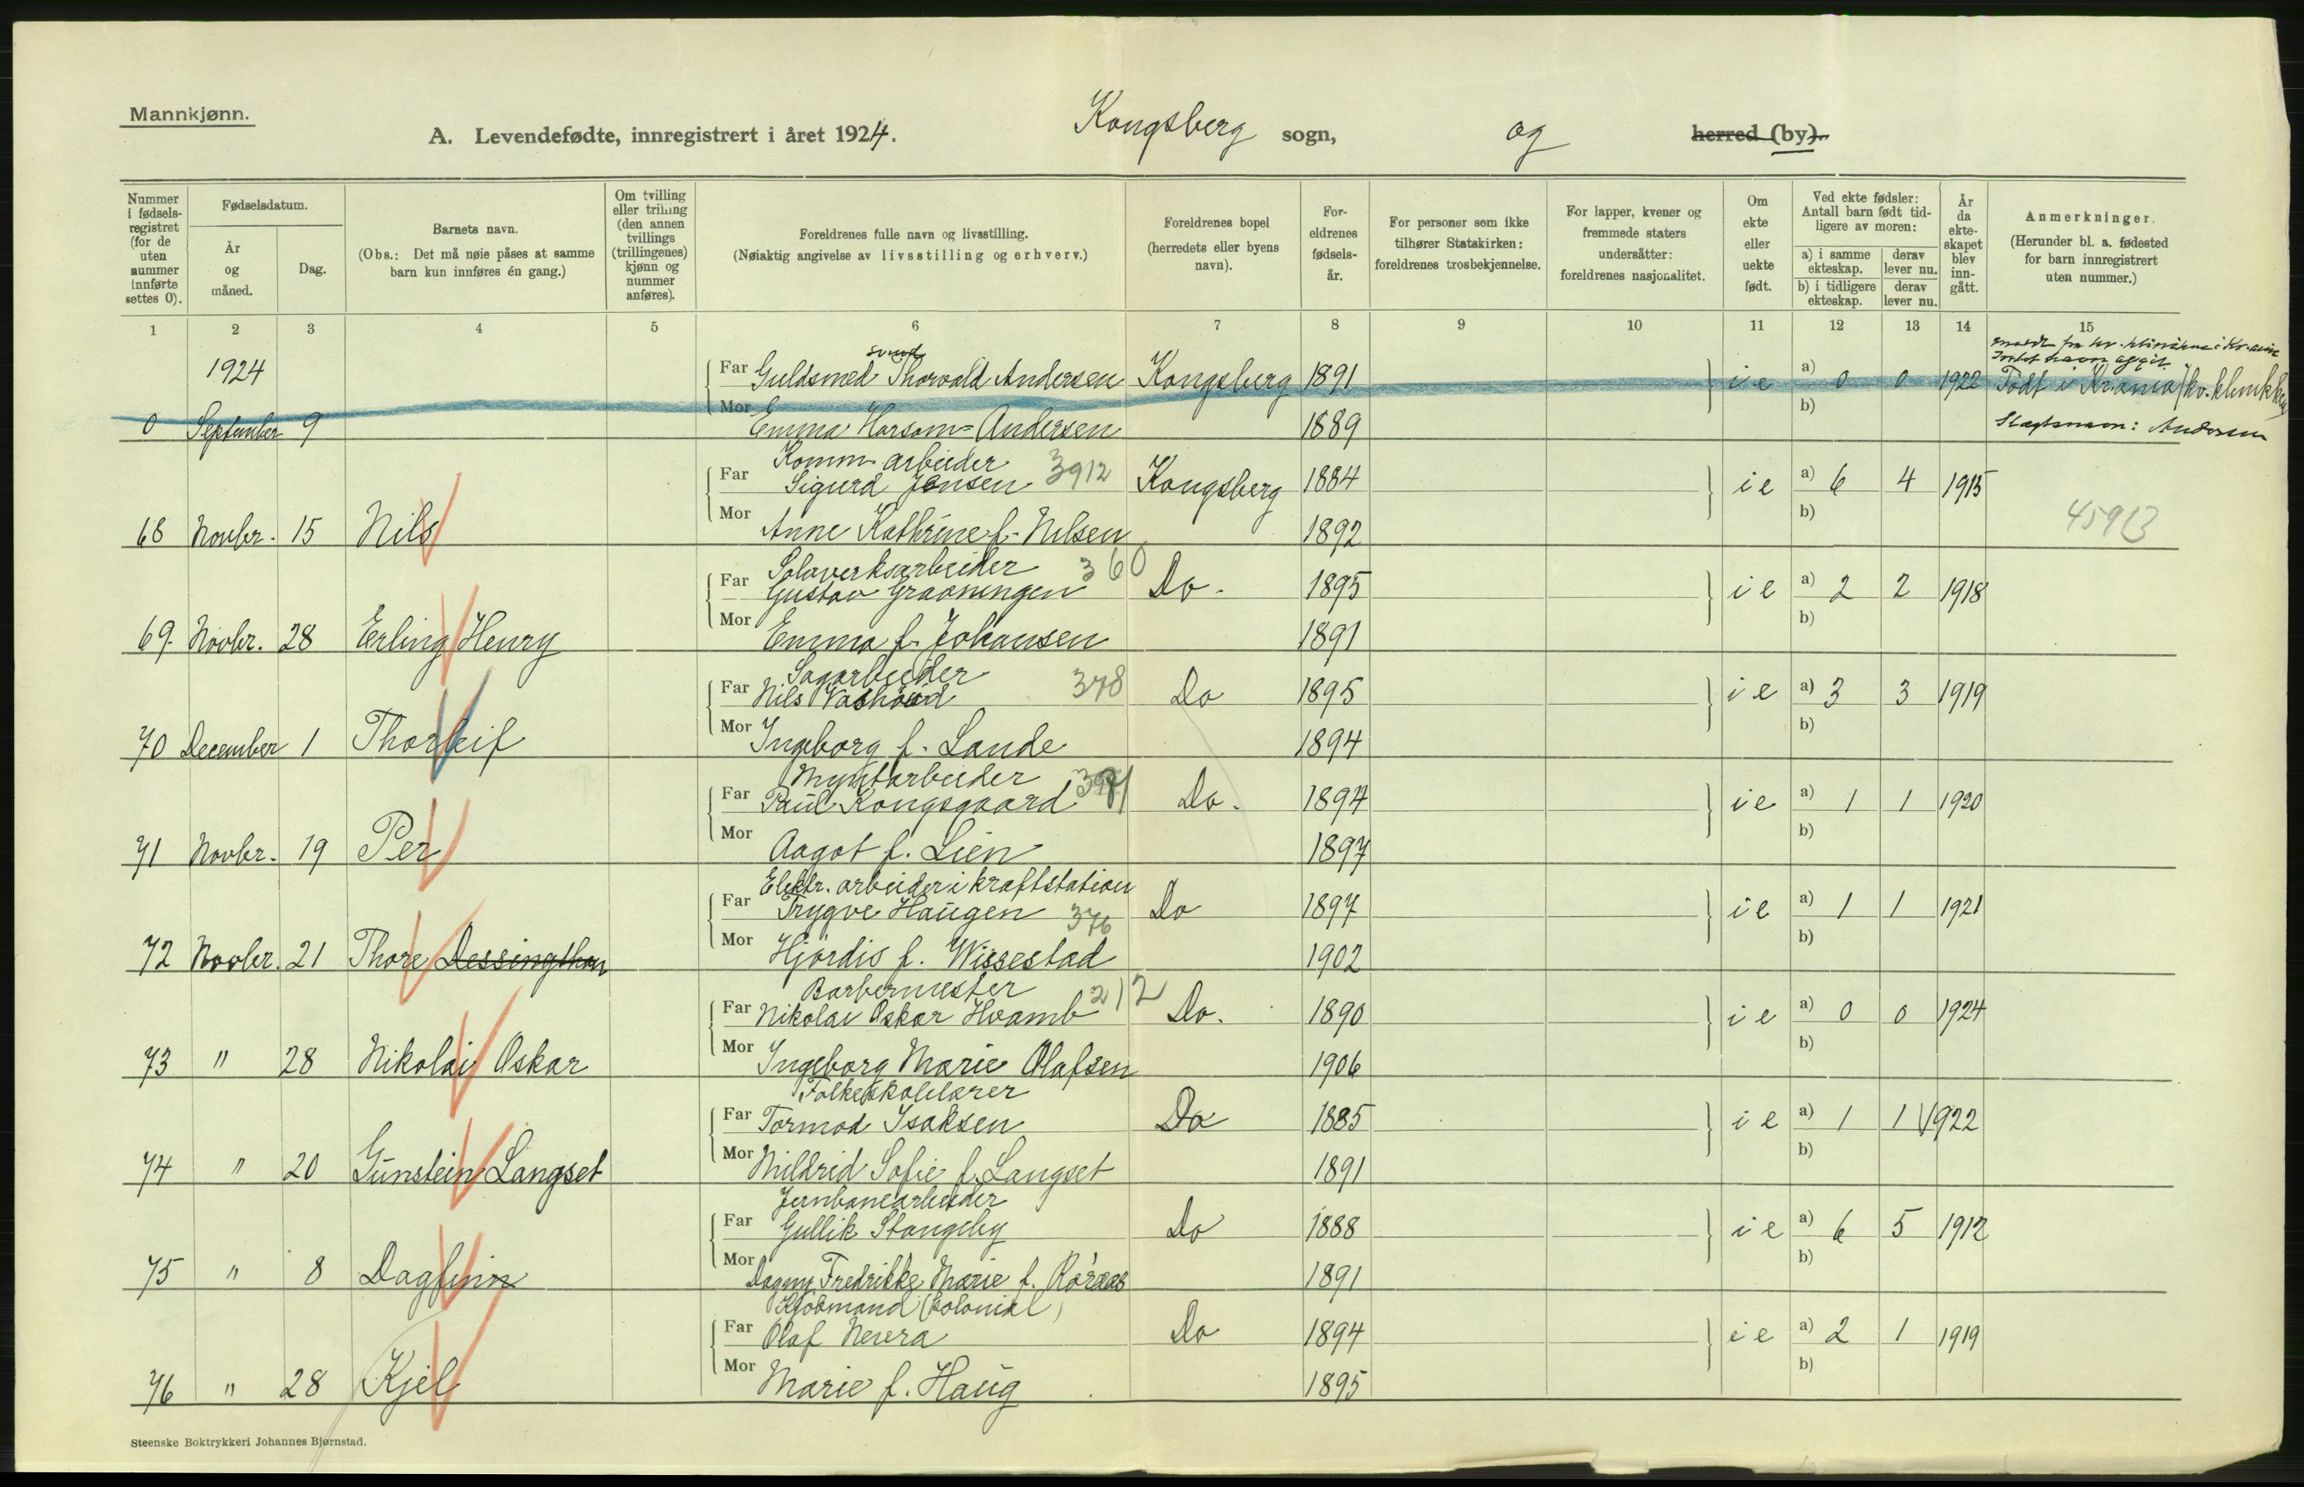 Mannkjønn.
A. Levendefødte, innregistrert i året 1924. Kongsberg sogn, og herred (by).
Nummer i fødsels-registret (for de uten nummer innførte settes 0).
Fødselsdatum.
År og måned.
Dag.
Barnets navn.
(Obs.: Det må nøie påses at samme barn kun innføres én gang.)
Om tvilling eller trilling (den annen tvillings (trillingenes) kjønn og nummer anføres).
Foreldrenes fulle navn og livsstilling.
(Nøiaktig angivelse av livsstilling og erhverv.)
Foreldrenes bopel (herredets eller byens navn).
For-eldrenes fødsels-år.
For personer som ikke tilhører Statskirken: foreldrenes trosbekjennelse.
For lapper, kvener og fremmede staters undersåtter: foreldrenes nasjonalitet.
Om ekte eller uekte født.
Ved ekte fødsler: Antall barn født tid-ligere av moren:
a) i samme ekteskap. derav lever nu.
b) i tidligere ekteskap. derav lever nu.
År da ekte-skapet blev inn-gått.
Anmerkninger.
(Herunder bl. a. fødested for barn innregistrert uten nummer.)
1 2 3 4 5 6 7 8 9 10 11 12 13 14 15
1924
svend
Far Guldsmed Thorvald Andersen Kongsberg 1891 i e a) 0 0 1922 Født i Kr.ania
b)
0 September 9 Mor Emma Andersen 1889 Slægtsnavn: Andersen
Komm. arbeider
Far Sigurd Jensen 3912 Kongsberg 1884 i e a) 6 4 1915
b)
68 Novbr. 15 Nils Mor Anne Kathrine f. Nilsen 1892
Sølvverksarbeider 360
Far Gustav Graaningen Do. 1895 i e a) 2 2 1918
b)
69. Novbr. 28 Erling Henry Mor Emma f. Johansen 1891
Sagarbeider
Far Nils 378 Do 1895 i e a) 3 3 1919
b)
70 December 1 Thorleif Mor Ingeborg f. Lande 1894
Myntarbeider
Far Paul Kongsgaard Do. 1894 i e a) 1 1 1920
b)
71 Novbr. 19 Per Mor Aagot f. Lien 1897
Elektr. arbeider i kraftstation
Far Trygve Haugen 376 Do 1897 i e a) 1 1 1921
b)
72 Novbr. 21 Thore Dessingthon Mor Hjørdis f. Wissestad 1902
Barbermester 212
Far Nikolai Oskar Hvamb Do. 1890 i e a) 0 0 1924
b)
73 " 28 Nikolai Oskar Mor Ingeborg Marie Olafsen 1906
Folkeskolelærer
Far Tormod Isaksen Do 1885 i e a) 1 1 1922
b)
74 " 20 Gunstein Langset Mor Mildrid Sofie f. Langset 1891
Jernbanearbeider
Far Gullik Stangeby Do 1888 i e a) 6 5 1912
b)
75 " 8 Dagfinn Mor Dagny Fredrikke Marie f. Røraas 1891
Kjøbmand (kolonial)
Far Olaf Nevera Do 1894 i e a) 2 1 1919
b)
76 " 28 Kjel Mor Marie f. Haug 1895
Steenske Boktrykkeri Johannes Bjørnstad.